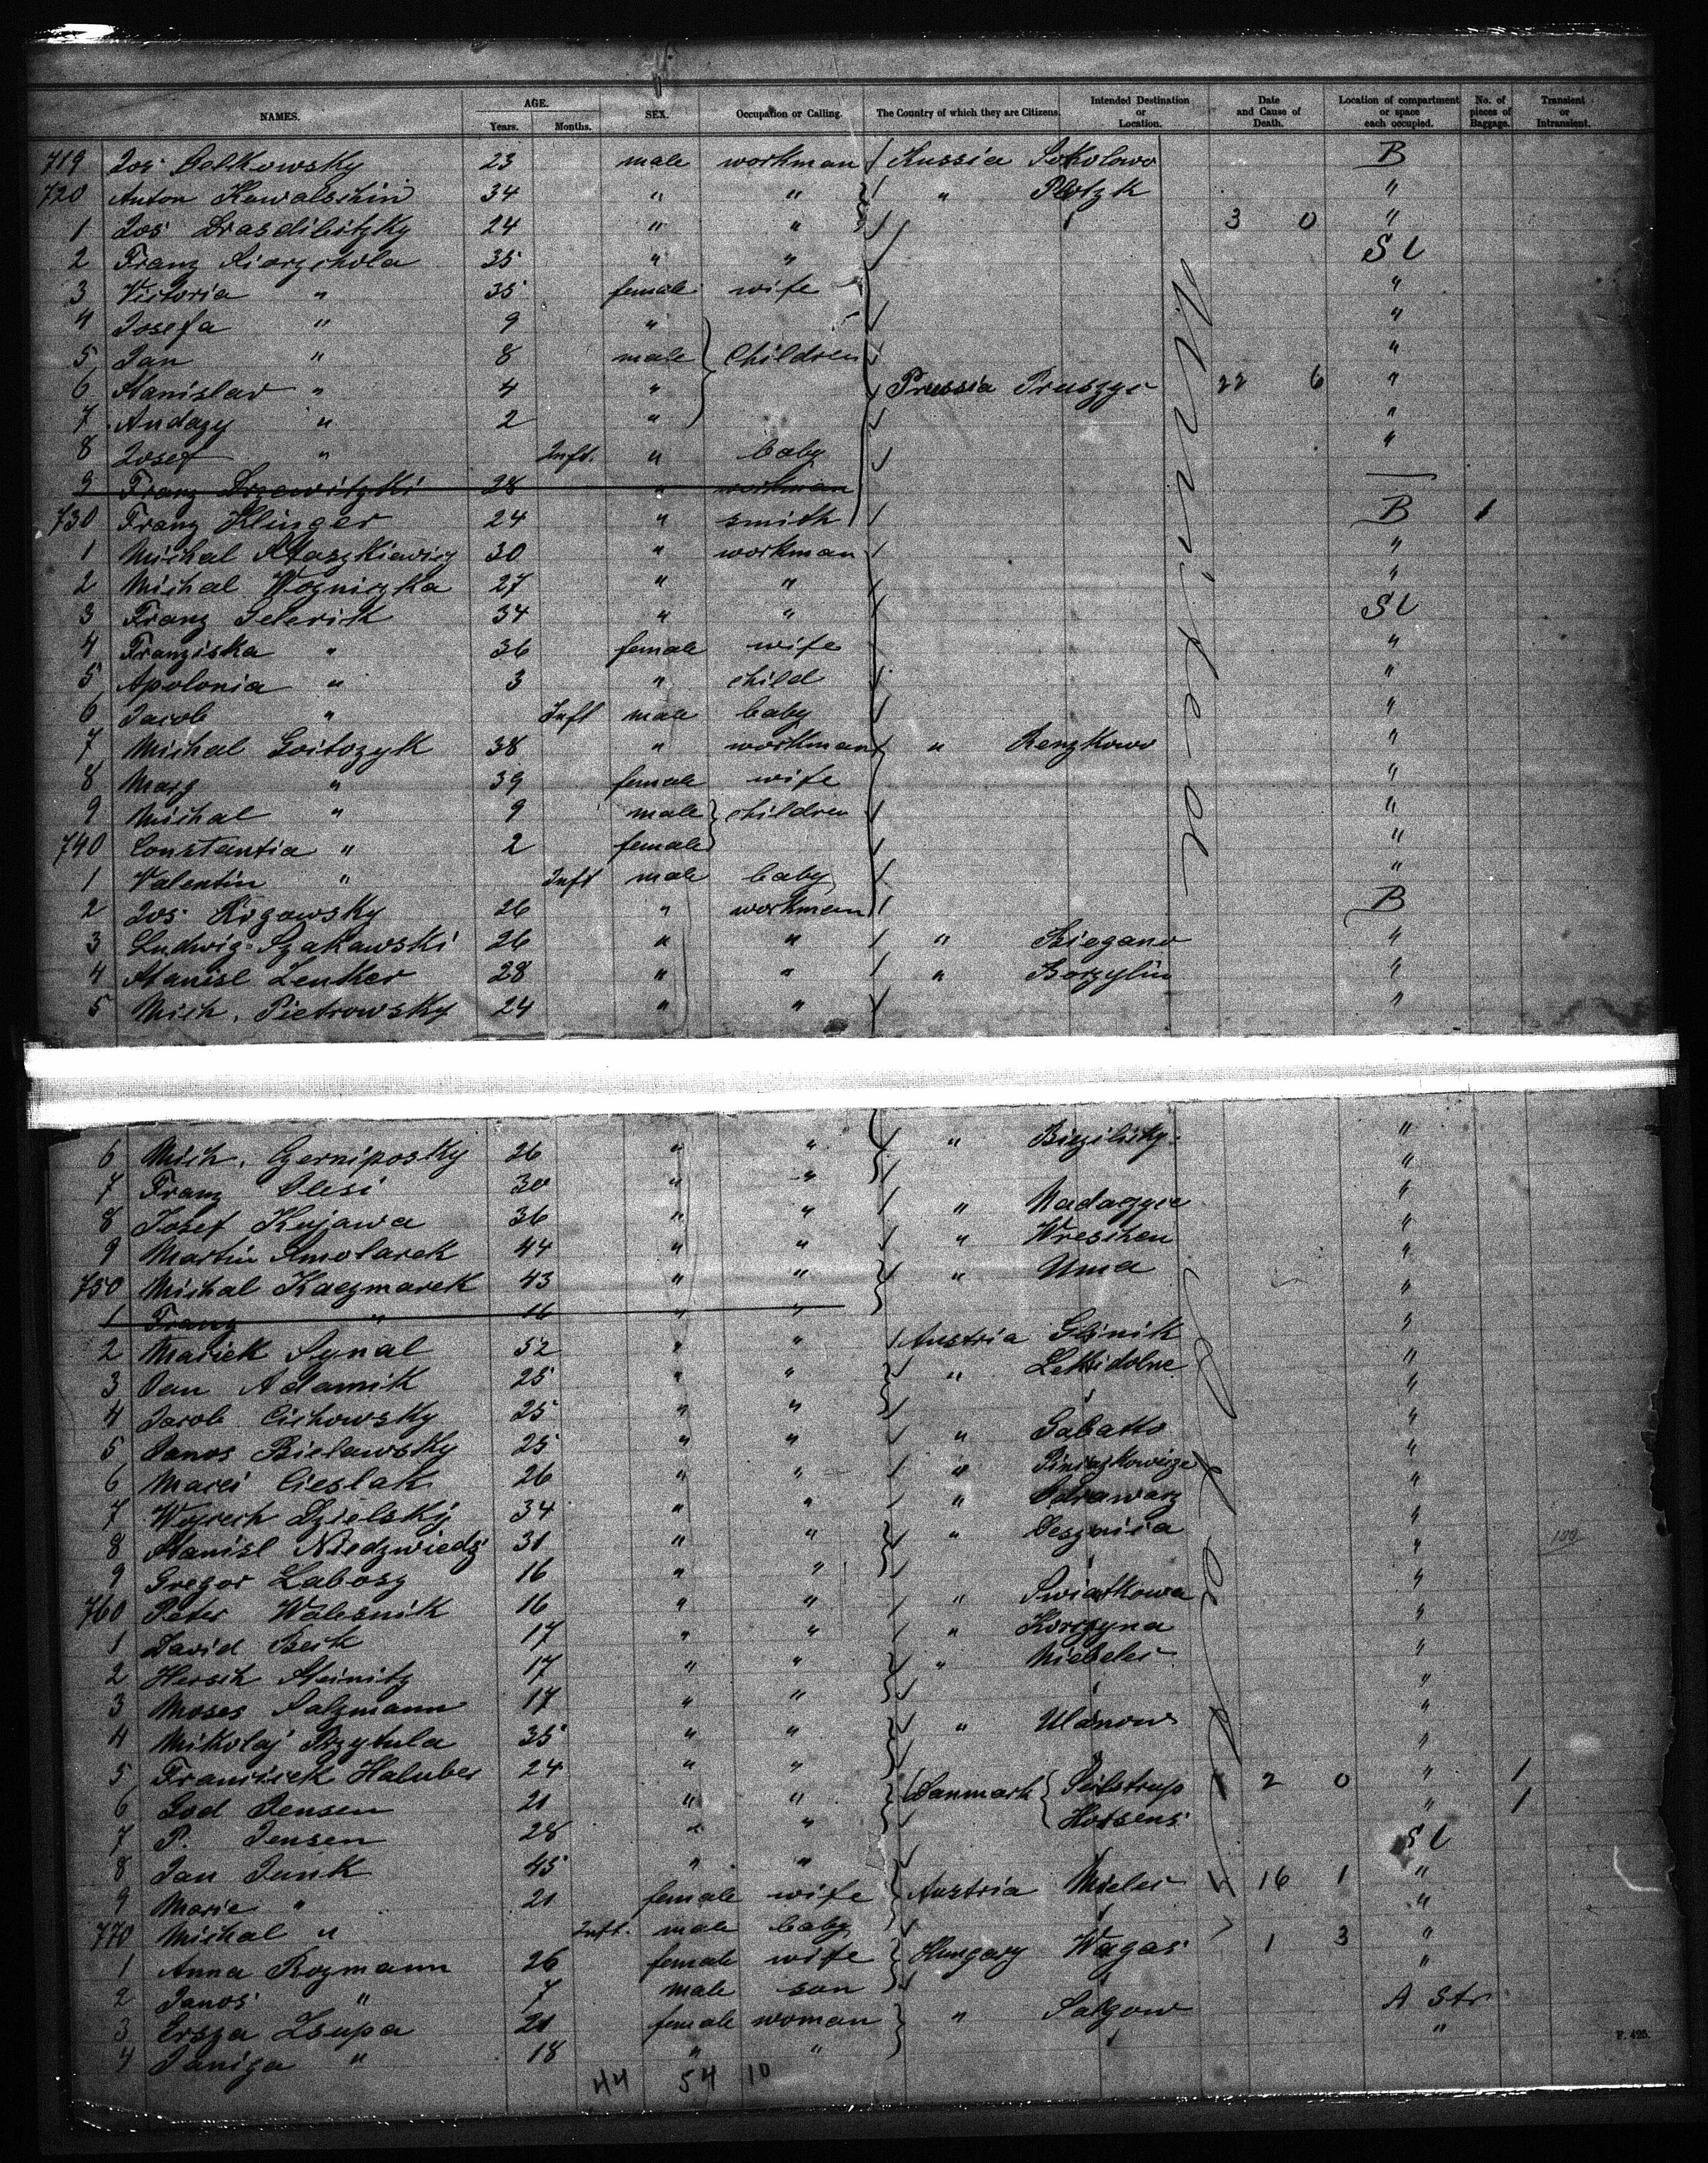 NAMES. AGE. Years. Months. SEX. Occupation or Calling. The Country of which they are Citizens. Intended Destination or Location. Date and Cause of Death. Location of compartment or space each occupied. No. of pieces of Baggage. Transient or Intransient.
719 Jos. Selkowsky 23 male workman Russia Sokolowo B
720 Anton Kowalschin 34 " " " Plotzk "
1 Jos. Drasdibitzky 24 " " 3 0 "
2 Franz 35 " " S l
3 Victoria " 35 female wife "
4 Josefa " 9 " "
5 Jan " 8 male children "
6 Stanislav " 4 " Prussia Pruszyc 22 6 "
7 Andazy " 2 " "
8 Josef " Inft. " baby "
9 Franz Drzewitzki 28 " workman —
730 Franz Klinger 24 " smith B 1
1 Michal Staszkiewicz 30 " workman "
2 Michal Wozniczka 27 " " "
3 Franz Selerik 34 " " S l
4 Franziska " 36 female wife "
5 Apolonia " 3 " child "
6 Jacob " Inft male baby "
7 Michal Goitozyk 38 " workman " Renzkowo "
8 Marg " 39 female wife "
9 Michal " 9 male children "
740 Constantia " 2 female "
1 Valentin " Inft male baby "
2 Jos. Rogowsky 26 " workman B
3 Ludwig Szakawski 26 " " " Biegano "
4 Stanisl Lenther 28 " " " Borzylin "
5 Mich. Pietrowsky 24 " " "
6 Mich. Czerniposky 26 " " " "
7 Franz Olesi 30 " " "
8 Josef Kujawa 36 " " " Nadazyce "
9 Martin Smolarek 44 " " " Wreschen "
750 Michal Kaczmarek 43 " " " Uma "
1 Franz " 16 " " "
2 Maciek Synal 52 " " Austria Glinik "
3 Jan Adamik 25 " " " "
4 Jacob Cichowsky 25 " " "
5 Janos Bielawsky 25 " " " Gabatto "
6 Marci Cieslak 26 " " " "
7 Wojcech Dzielsky 34 " " " "
8 Stanisl Niedzwiedz 31 " " " "
9 Gregor Labosz 16 " " "
760 Peter Walesnik 16 " " " Swiatkowa "
1 David Beck 17 " " " Korczyna "
2 Hersch Steinitz 17 " " " "
3 Moses Salzmann 17 " " "
4 Mikolaj Przybula 35 " " " Ulanow "
5 Francisek Haluber 24 " " "
6 God Jensen 21 " " Danmark Seilstrup 2 0 " 1
7 P. Jensen 28 " " Horsens " 1
8 Jan Junk 45 " " S l
9 Marie " 21 female wife Austria Mielec 16 1 "
770 Michal " Inft. male baby "
1 Anna Rozmann 26 female wife Hungary Wagas 1 3 "
2 Janos " 7 male son "
3 Ersza Zsupa 21 female woman " Salgow A Str
4 Janiza " 18 " " "
44 54 10
F. 425.